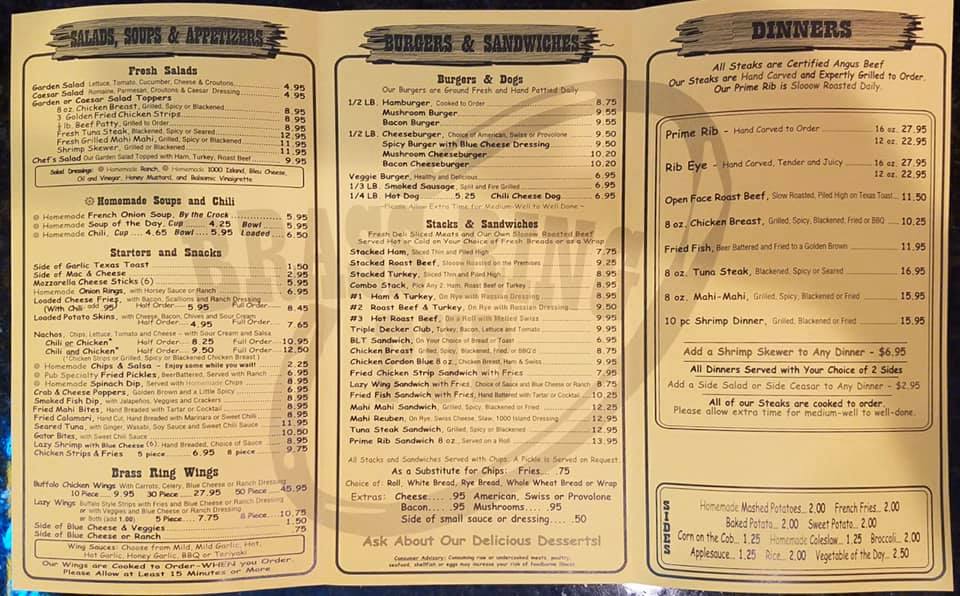 SALADS, SOUPS & APPETIZERS
Fresh Salads
Garden Salad Lettuce, Tomato, Cucumber, Cheese & Croutons 4.95
Caesar Salad Romaine, Parmesan, Croutons & Caesar Dressing 4.95
Garden or Caesar Salad Toppers
8 oz. Chicken Breast, Grilled, Spicy or Blackened 8.95
3 Golden Fried Chicken Strips 8.95
½ lb. Beef Patty, Grilled to Order 8.95
Fresh Tuna Steak, Blackened, Spicy or Seared 12.95
Fresh Grilled Mahi Mahi, Grilled, Spicy or Blackened 11.95
Shrimp Skewer, Grilled or Blackened 11.95
Chef's Salad Our Garden Salad Topped with Ham, Turkey, Roast Beef 9.95
Salad Dressings: Homemade Ranch, Homemade 1000 Island, Bleu Cheese,
Oil and Vinegar, Honey Mustard, and Balsamic Vinaigrette
Homemade Soups and Chili
Homemade French Onion Soup, By the Crock 5.95
Homemade Soup of the Day, Cup 4.25 Bowl 5.95
Homemade Chili, Cup 4.65 Bowl 5.95 Loaded 6.50
Starters and Snacks
Side of Garlic Texas Toast 1.50
Side of Mac & Cheese 2.95
Mozzarella Cheese Sticks (6) 5.95
Homemade Onion Rings, with Horsey Sauce or Ranch 6.95
Loaded Cheese Fries, with Bacon, Scallions and Ranch Dressing
(With Chili add .95) Half Order 5.95 Full Order 8.45
Loaded Potato Skins, with Cheese, Bacon, Chives and Sour Cream
Half Order 4.95 Full Order 7.65
Nachos, Chips, Lettuce, Tomato and Cheese - with Sour Cream and Salsa
Chili or Chicken* Half Order 8.25 Full Order 10.95
Chili and Chicken* Half Order 9.50 Full Order 12.50
(*Chicken Strips or Grilled, Spicy or Blackened Chicken Breast)
Homemade Chips & Salsa - Enjoy some while you wait! 2.25
Pub Specialty Fried Pickles, Beer Battered, Served with Ranch 6.95
Homemade Spinach Dip, Served with Homemade Chips 8.95
Crab & Cheese Poppers, Golden Brown and a Little Spicy 6.95
Smoked Fish Dip, with Jalapeños, Veggies and Crackers 8.95
Fried Mahi Bites, Hand Breaded with Tartar or Cocktail 8.95
Fried Calamari, Hand Cut, Hand Breaded with Marinara or Sweet Chili 8.95
Seared Tuna, with Ginger, Wasabi, Soy Sauce and Sweet Chili Sauce 11.95
Gator Bites, with Sweet Chili Sauce 10.50
Lazy Shrimp with Blue Cheese (6), Hand Breaded, Choice of Sauce 8.95
Chicken Strips & Fries 5 piece 6.95 8 piece 9.75
Brass Ring Wings
Buffalo Chicken Wings With Carrots, Celery, Blue Cheese or Ranch Dressing
10 Piece 9.95 30 Piece 27.95 50 Piece 45.95
Lazy Wings Buffalo Style Strips with Fries and Blue Cheese or Ranch Dressing
or with Veggies and Blue Cheese or Ranch Dressing
or Both (add 1.00) 5 Piece 7.75 8 Piece 10.75
Side of Blue Cheese & Veggies 1.50
Side of Blue Cheese or Ranch .75
Wing Sauces: Choose from Mild, Mild Garlic, Hot,
Hot Garlic, Honey Garlic, BBQ or Teriyaki
Our Wings are Cooked to Order-WHEN you Order.
Please Allow at Least 15 Minutes or More
BURGERS & SANDWICHES
Burgers & Dogs
Our Burgers are Ground Fresh and Hand Pattied Daily
1/2 LB. Hamburger, Cooked to Order 8.75
Mushroom Burger 9.55
Bacon Burger 9.55
1/2 LB. Cheeseburger, Choice of American, Swiss or Provolone 9.50
Spicy Burger with Blue Cheese Dressing 9.50
Mushroom Cheeseburger 10.20
Bacon Cheeseburger 10.20
Veggie Burger, Healthy and Delicious 6.95
1/3 LB. Smoked Sausage, Split and Fire Grilled 6.95
1/4 LB. Hot Dog 5.25 Chili Cheese Dog 6.95
~Please Allow Extra Time for Medium-Well to Well Done~
Stacks & Sandwiches
Fresh Deli Sliced Meats and Our Own Slooow Roasted Beef
Served Hot or Cold on Your Choice of Fresh Breads or as a Wrap
Stacked Ham, Sliced Thin and Piled High 7.75
Stacked Roast Beef, Slooow Roasted on the Premises 9.25
Stacked Turkey, Sliced Thin and Piled High 8.95
Combo Stack, Pick Any 2: Ham, Roast Beef or Turkey 8.95
#1 Ham & Turkey, On Rye with Russian Dressing 8.95
#2 Roast Beef & Turkey, On Rye with Russian Dressing 9.50
#3 Hot Roast Beef, On a Roll with Melted Swiss 9.95
Triple Decker Club, Turkey, Bacon, Lettuce and Tomato 9.95
BLT Sandwich, On Your Choice of Bread or Toast 6.95
Chicken Breast Grilled, Spicy, Blackened, Fried, or BBQ'd 8.75
Chicken Cordon Blue 8 oz., Chicken Breast, Ham & Swiss 9.95
Fried Chicken Strip Sandwich with Fries 7.95
Lazy Wing Sandwich with Fries, Choice of Sauce and Blue Cheese or Ranch 8.75
Fried Fish Sandwich with Fries, Hand Battered with Tartar or Cocktail 10.25
Mahi Mahi Sandwich, Grilled, Spicy, Blackened or Fried 12.25
Mahi Reuben, On Rye, Swiss Cheese, Slaw, 1000 Island Dressing 12.95
Tuna Steak Sandwich, Grilled, Spicy or Blackened 12.95
Prime Rib Sandwich 8 oz., Served on a Roll 13.95
All Stacks and Sandwiches Served with Chips. A Pickle is Served on Request.
As a Substitute for Chips: Fries... .75
Choice of: Roll, White Bread, Rye Bread, Whole Wheat Bread or Wrap
Extras: Cheese.... .95 American, Swiss or Provolone
Bacon..... .95 Mushrooms.... .95
Side of small sauce or dressing.... .50
Ask About Our Delicious Desserts!
Consumer Advisory: Consuming raw or undercooked meats, poultry,
seafood, shellfish or eggs may increase your risk of foodborne illness
DINNERS
All Steaks are Certified Angus Beef
Our Steaks are Hand Carved and Expertly Grilled to Order.
Our Prime Rib is Slooow Roasted Daily.
Prime Rib - Hand Carved to Order 16 oz. 27.95
12 oz. 22.95
Rib Eye - Hand Carved, Tender and Juicy 16 oz. 27.95
12 oz. 22.95
Open Face Roast Beef, Slow Roasted, Piled High on Texas Toast 11.50
8 oz. Chicken Breast, Grilled, Spicy, Blackened, Fried or BBQ 10.25
Fried Fish, Beer Battered and Fried to a Golden Brown 11.95
8 oz. Tuna Steak, Blackened, Spicy or Seared 16.95
8 oz. Mahi-Mahi, Grilled, Spicy, Blackened or Fried 15.95
10 pc Shrimp Dinner, Grilled, Blackened or Fried 15.95
Add a Shrimp Skewer to Any Dinner - $6.95
All Dinners Served with Your Choice of 2 Sides
Add a Side Salad or Side Ceasar to Any Dinner - $2.95
All of our Steaks are cooked to order.
Please allow extra time for medium-well to well-done.
SIDES
Homemade Mashed Potatoes... 2.00 French Fries... 2.00
Baked Potato... 2.00 Sweet Potato... 2.00
Corn on the Cob... 1.25 Homemade Coleslaw... 1.25 Broccoli... 2.00
Applesauce... 1.25 Rice... 2.00 Vegetable of the Day... 2.50
BRASS RING